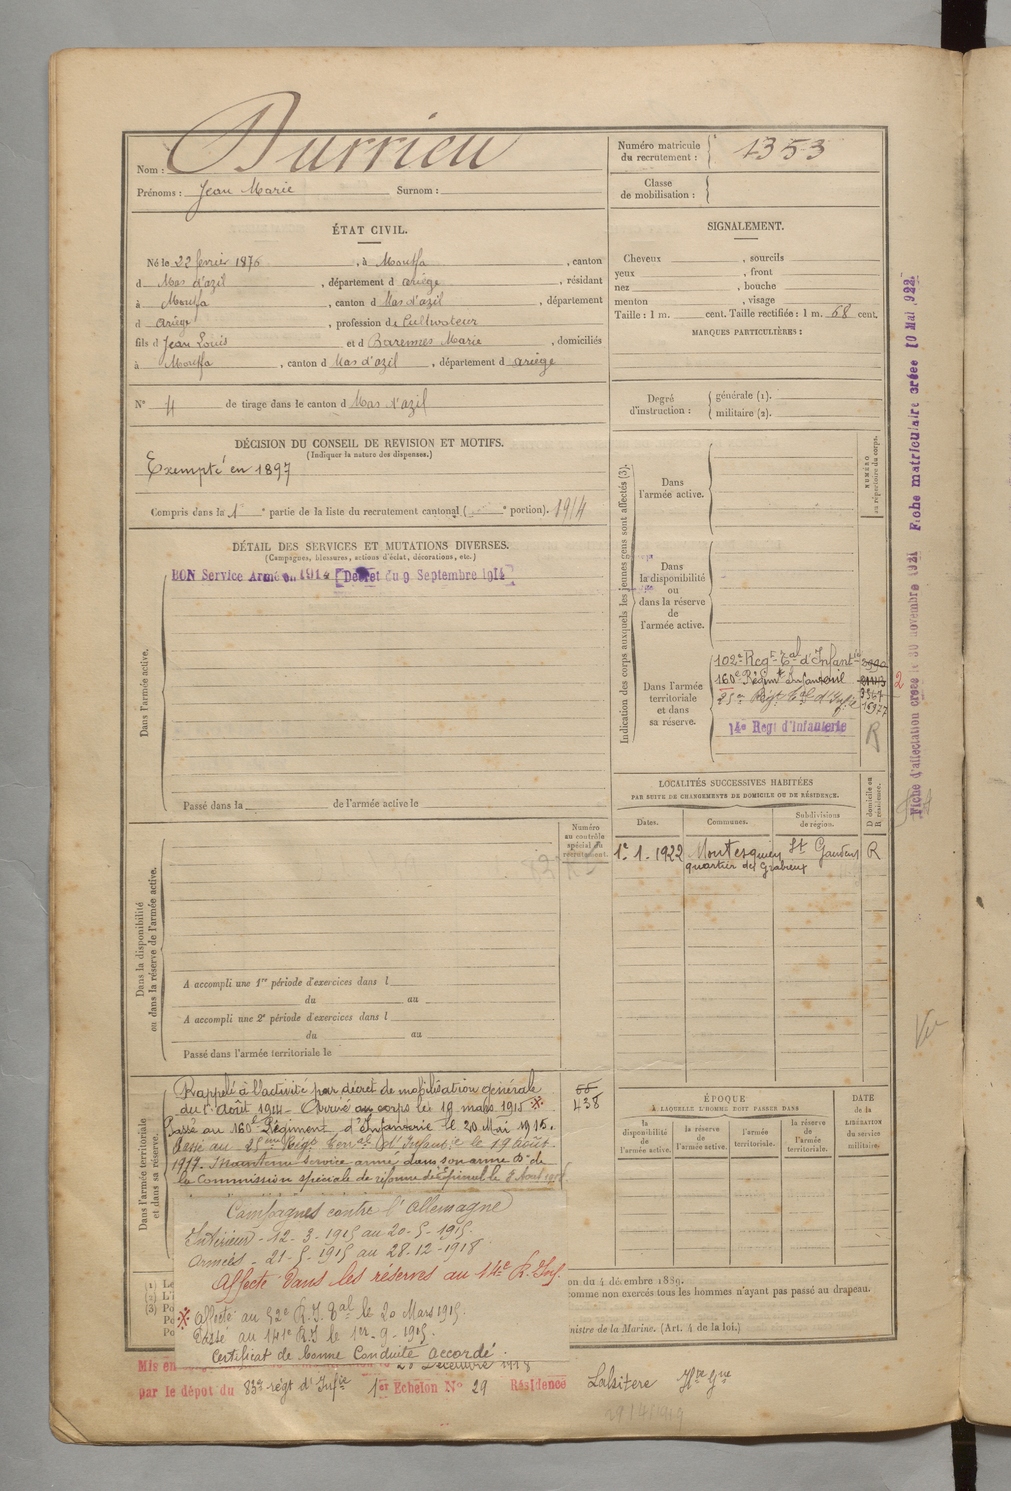 Nom : Durrieu
Prénoms : Jean Marie Surnom :
Numéro matricule du recrutement : 1353
Classe de mobilisation :
ÉTAT CIVIL.
Né le 22 fevrier 1876, à Mouffa, canton
d Mas d'azil, département d ariège, résidant
à Mouffa, canton d Mas d'azil, département
d ariège, profession de Cultivateur
fils d Jean Louis et d Barennes Marie, domiciliés
à Mouffa, canton d Mas d'azil, département d ariège
N° 4 de tirage dans le canton d Mas d'azil
SIGNALEMENT.
Cheveux , sourcils
yeux , front
nez , bouche
menton , visage
Taille : 1 m. cent. Taille rectifiée : 1 m. 68 cent.
MARQUES PARTICULIÈRES :
Degré d'instruction : générale (1).
militaire (2).
DÉCISION DU CONSEIL DE REVISION ET MOTIFS.
(Indiquer la nature des dispenses.)
Exempté en 1897
Compris dans la 1e partie de la liste du recrutement cantonal ( e portion). 1914
DÉTAIL DES SERVICES ET MUTATIONS DIVERSES.
(Campagnes, blessures, actions d'éclat, décorations, etc.)
BON Service Armé en 1914 [Décret du 9 Septembre 1914]
Dans l'armée active.
Passé dans la de l'armée active le
Indication des corps auxquels les jeunes gens sont affectés (3).
NUMÉRO au répertoire du corps.
Dans l'armée active.
Dans la disponibilité ou dans la réserve de l'armée active.
Dans l'armée territoriale et dans sa réserve.
102e Regt Tal d'Infantie
160e Régimt Infanterie
25e Regt Tal d'Infie
14e Regt d'Infanterie
3367
R
2
Fiche d'affectation créée le 30 novembre 1921 Fiche matriculaire créée 10 Mai 1922
LOCALITÉS SUCCESSIVES HABITÉES
PAR SUITE DE CHANGEMENTS DE DOMICILE OU DE RÉSIDENCE.
Dates. Communes. Subdivisions de région. D domicile ou R résidence.
1er 1. 1922 Montesquieu St Gaudens R
quartier des
Dans la disponibilité ou dans la réserve de l'armée active.
Numéro au contrôle spécial du recrutement.
A accompli une 1re période d'exercices dans l
du au
A accompli une 2e période d'exercices dans l
du au
Passé dans l'armée territoriale le
Dans l'armée territoriale et dans sa réserve.
Rappelé à l'activité par décret de mobilisation générale
du 1er Août 1914 - Arrivé au corps le 12 mars 1915 ※
Passé au 160e Régiment d'Infanterie le 20 Mai 1915.
Passé au 25eme Régt Terral d'Infanterie le 19 août
1917. Maintenu service armé dans son arme Don de
la Commission spéciale de réforme d'Epinal le 3 Aout
438
Campagnes contre l'Allemagne
Intérieur - 12-3-1915 au 20-5-1915.
Armées - 21-5-1915 au 28-12-1918
Affecté dans les réserves au 14e R. d'Inf.
※ Affecté au 52e R.I. Tal le 20 Mars 1915.
Passé au 141e R.I. le 1er-9-1915.
Certificat de bonne Conduite accordé.
ÉPOQUE
À LAQUELLE L'HOMME DOIT PASSER DANS
la disponibilité de l'armée active. la réserve de l'armée active. l'armée territoriale. la réserve de l'armée territoriale.
DATE de la LIBÉRATION du service militaire.
on du 4 décembre 1889.
comme non exercés tous les hommes n'ayant pas passé au drapeau.
nistre de la Marine. (Art. 4 de la loi.)
Mis en
Décembre 1918
par le dépot du 83e régt d'Infie 1er Echelon No 29 Résidence Labitere Hte Gne
29/4/1919
Vu